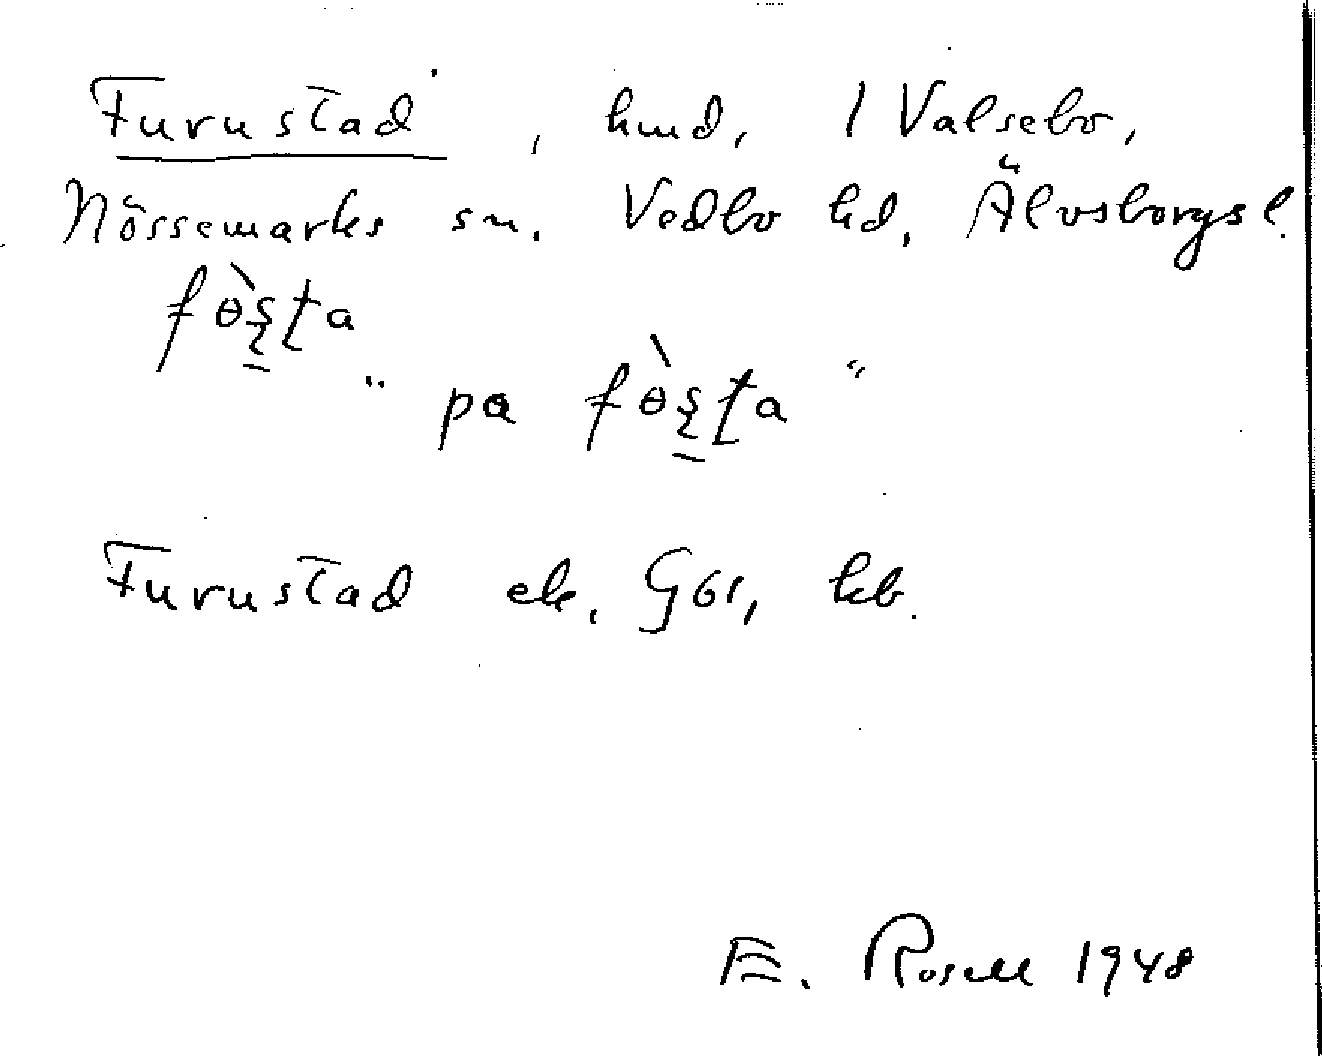 Furustad, hmd, 1 Valsebo,
Nössemarks sn. Vedbo hd. Älvsborgs l.
fɵ̀ʂʈa
" pa fɵ̀ʂʈa "
Furustad ek. G61, kb.
E. Rosell 1948